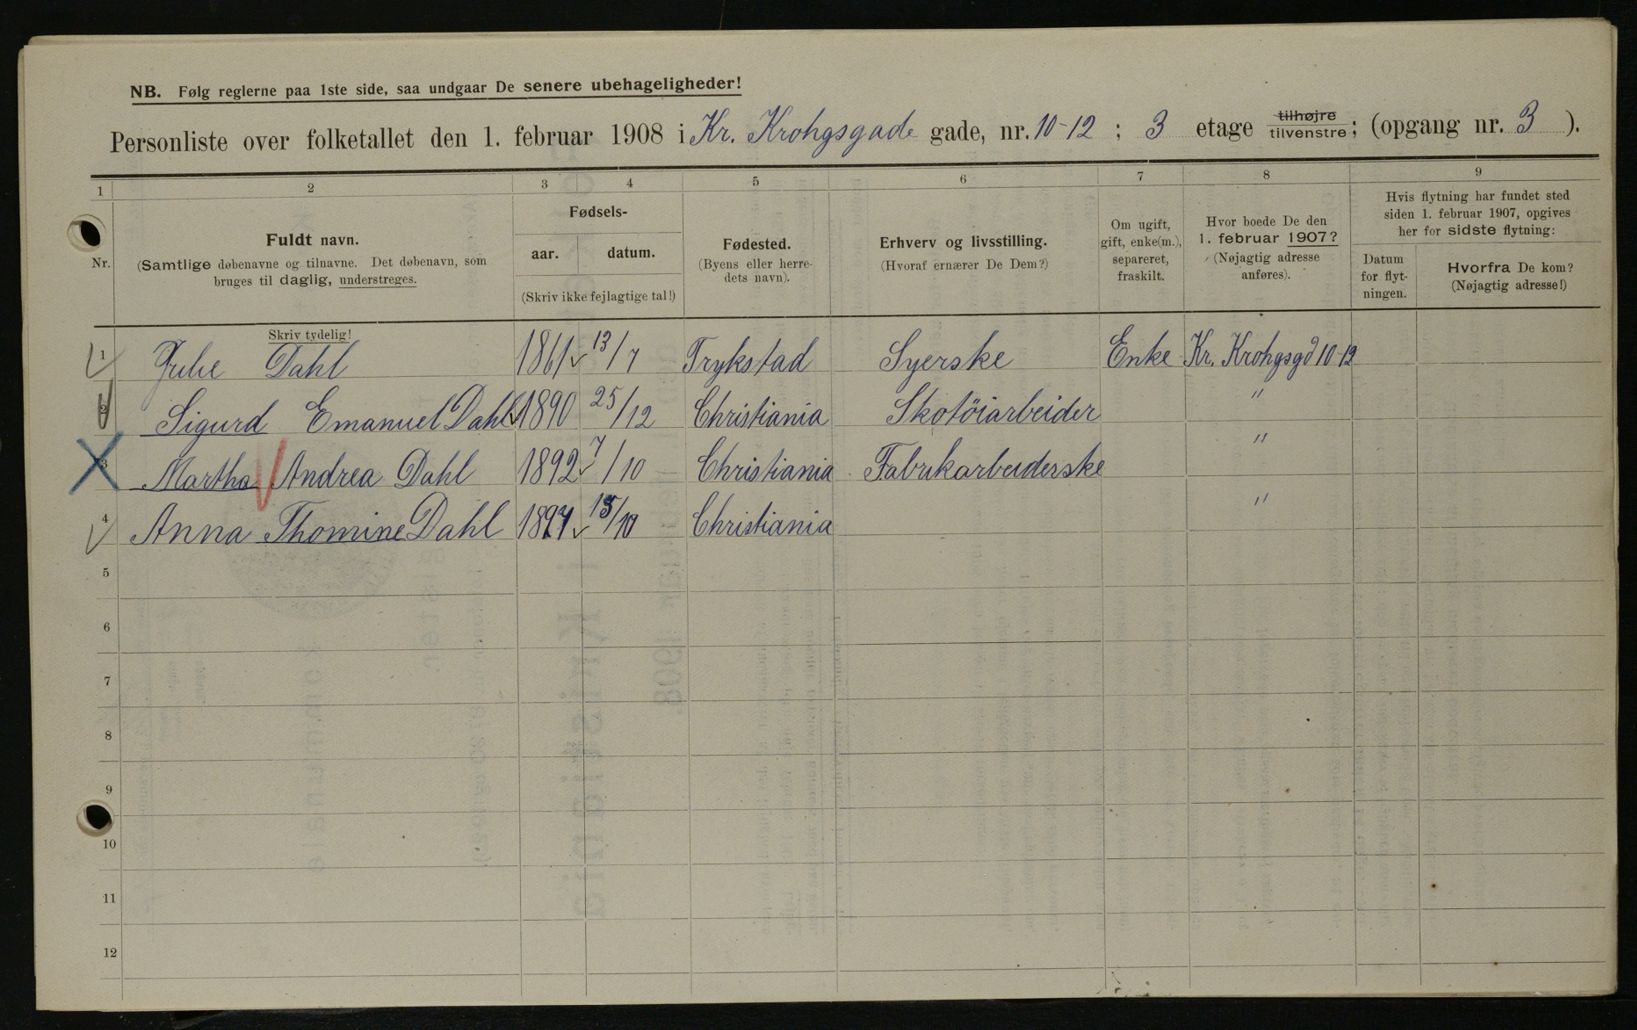 NB. Følg reglerne paa 1ste side, saa undgaar De senere ubehageligheder!
Personliste over folketallet den 1. februar 1908 i Kr. Krohgsgade gade, nr. 10-12 ; 3 etage tilhøjre tilvenstre ; (opgang nr. 3 ).
1 2 3 4 5 6 7 8 9
Nr.
Fuldt navn.
(Samtlige døbenavne og tilnavne. Det døbenavn, som
bruges til daglig, understreges.
Skriv tydelig!
Fødsels-
aar. datum.
(Skriv ikke fejlagtige tal!)
Fødested.
(Byens eller herre-
dets navn).
Erhverv og livsstilling.
(Hvoraf ernærer De Dem?)
Om ugift,
gift, enke(m.),
separeret,
fraskilt.
Hvor boede De den
1. februar 1907?
(Nøjagtig adresse
anføres).
Hvis flytning har fundet sted
siden 1. februar 1907, opgives
her for sidste flytning:
Datum
for flyt-
ningen.
Hvorfra De kom?
(Nøjagtig adresse!)
1 Julie Dahl 1861 13/7 Trykstad Syerske Enke Kr. Krohgsgd 10-12
2 Sigurd Emanuel Dahl 1890 25/12 Christiania Skotöiarbeider "
3 Martha Andrea Dahl 1892 7/10 Christiania Fabrikarbeiderske "
4 Anna Thomine Dahl Christiania "
5
6
7
8
9
10
11
12